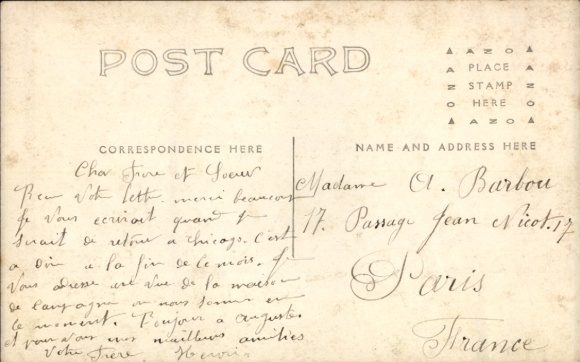 POST CARD
▲ A Z O ▲
A PLACE A
N STAMP N
O HERE O
▲ A Z O ▲
CORRESPONDENCE HERE
NAME AND ADDRESS HERE
Cher Frere et Soeur
Recu Votre lettre merci beaucoup
Je Vous ecrirait quand je
serait de retour a Chicago. C'est
a Dire a la fin de ce mois. je
Vous adresse une Vue de la maison
de Campagne ou nous sommes en
ce moment. Bonjour a auguste.
et pour Vous mes meilleurs amities
Votre Frere
Madame A. Barbou
17. Passage Jean Nicot. 17
Paris
France